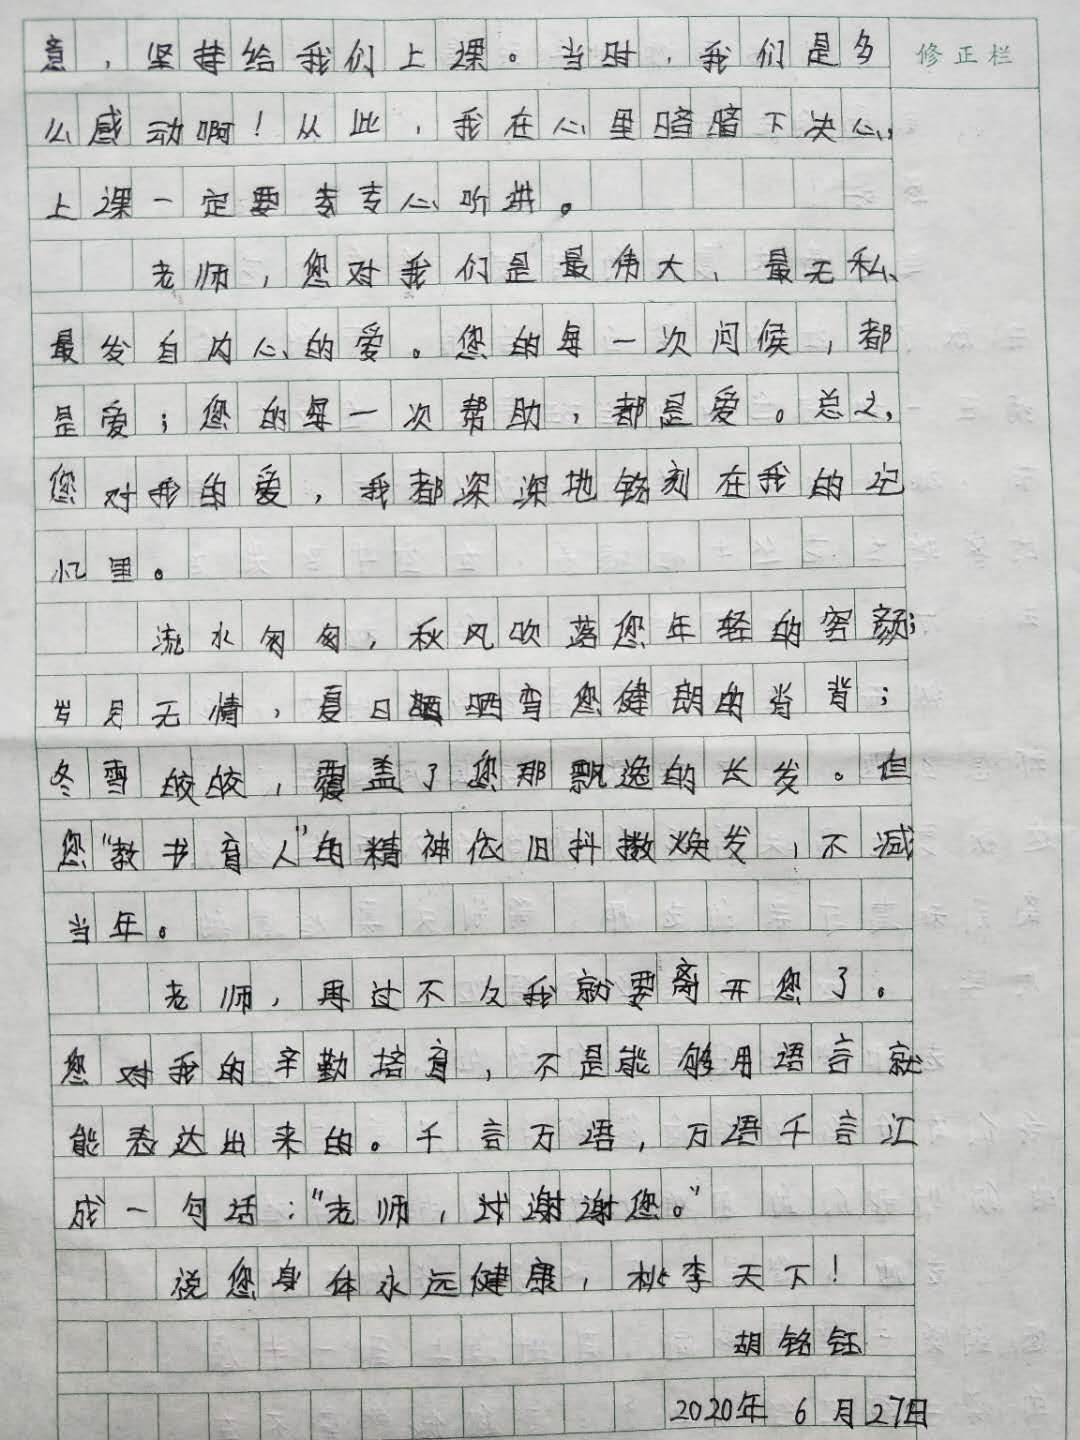 意，坚持给我们上课。当时，我们是多
修正栏
么感动啊！从此，我在心里暗暗下决心，
上课一定要专专心听讲。
老师，您对我们是最伟大、最无私、
最发自内心的爱。您的每一次问候，都
是爱；您的每一次帮助，都是爱。总之，
您对我的爱，我都深深地铭刻在我的记
忆里。
流水匆匆，秋风吹落您年轻的容颜；
岁月无情，夏日晒弯您健朗的脊背；
冬雪皎皎，覆盖了您那飘逸的长发。但
您"教书育人"的精神依旧抖擞焕发，不减
当年。
老师，再过不久我就要离开您了。
您对我的辛勤培育，不是能够用语言就
能表达出来的。千言万语，万语千言汇
成一句话："老师，谢谢您。"
祝您身体永远健康，桃李天下！
胡铭钰
2020年6月27日